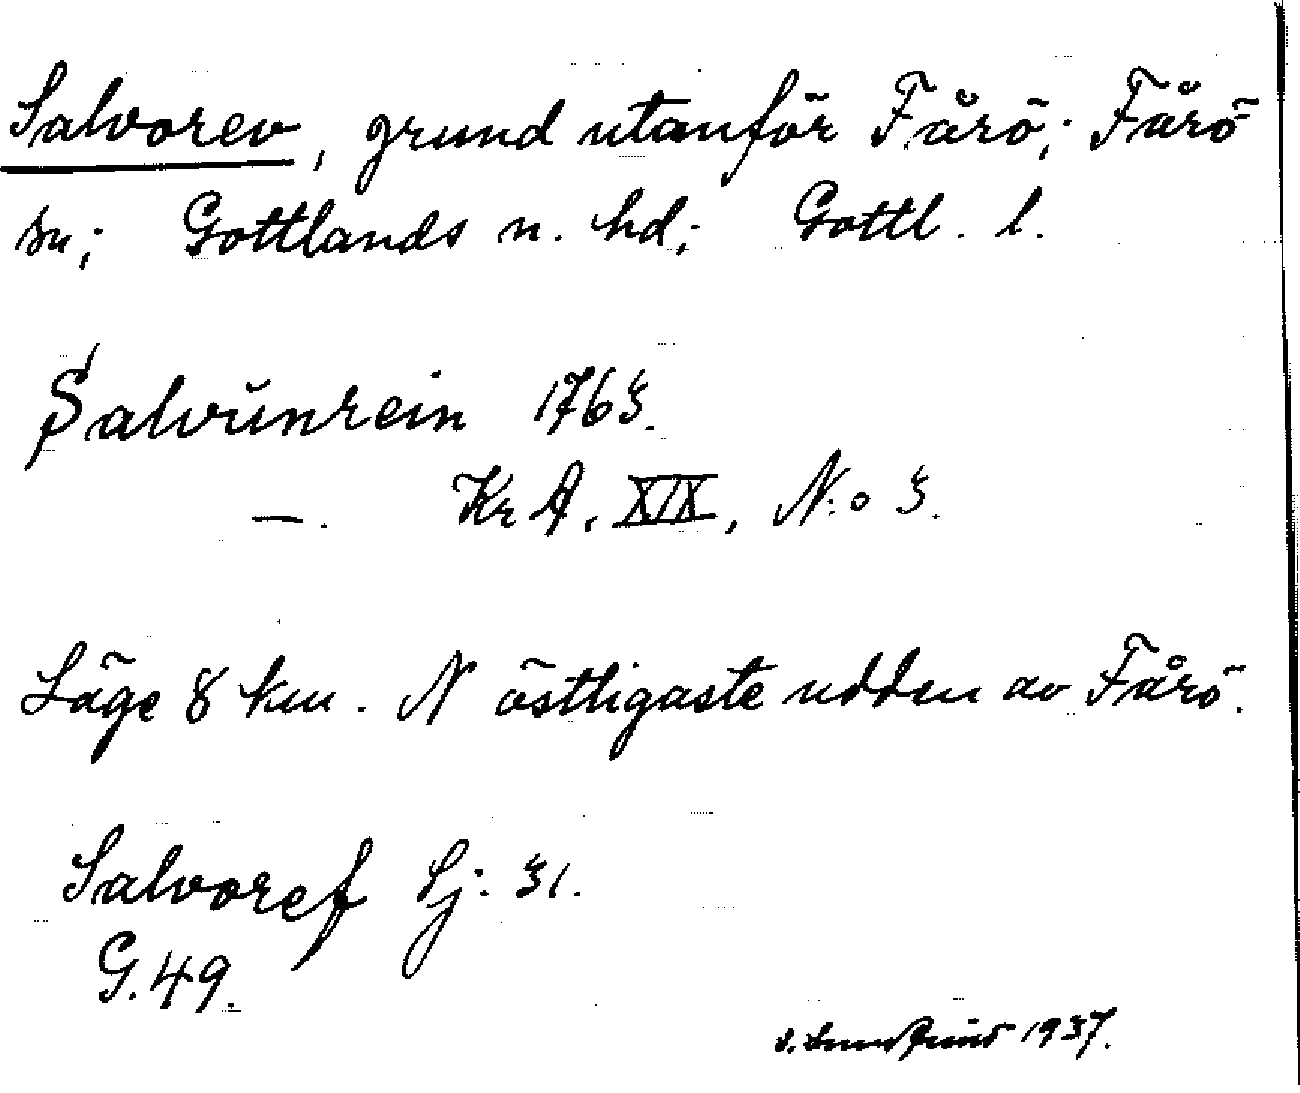 Salvorev, grund utanför Fårö; Fårö
sn; Gottlands n. hd; Gottl. l.
Salvŭnrein 1763.
—. KrA. XIX, N:o 3.
Läge 8 km. N östligaste udden av Fårö.
Salvoref Sj: 31.
G. 49.
1937.